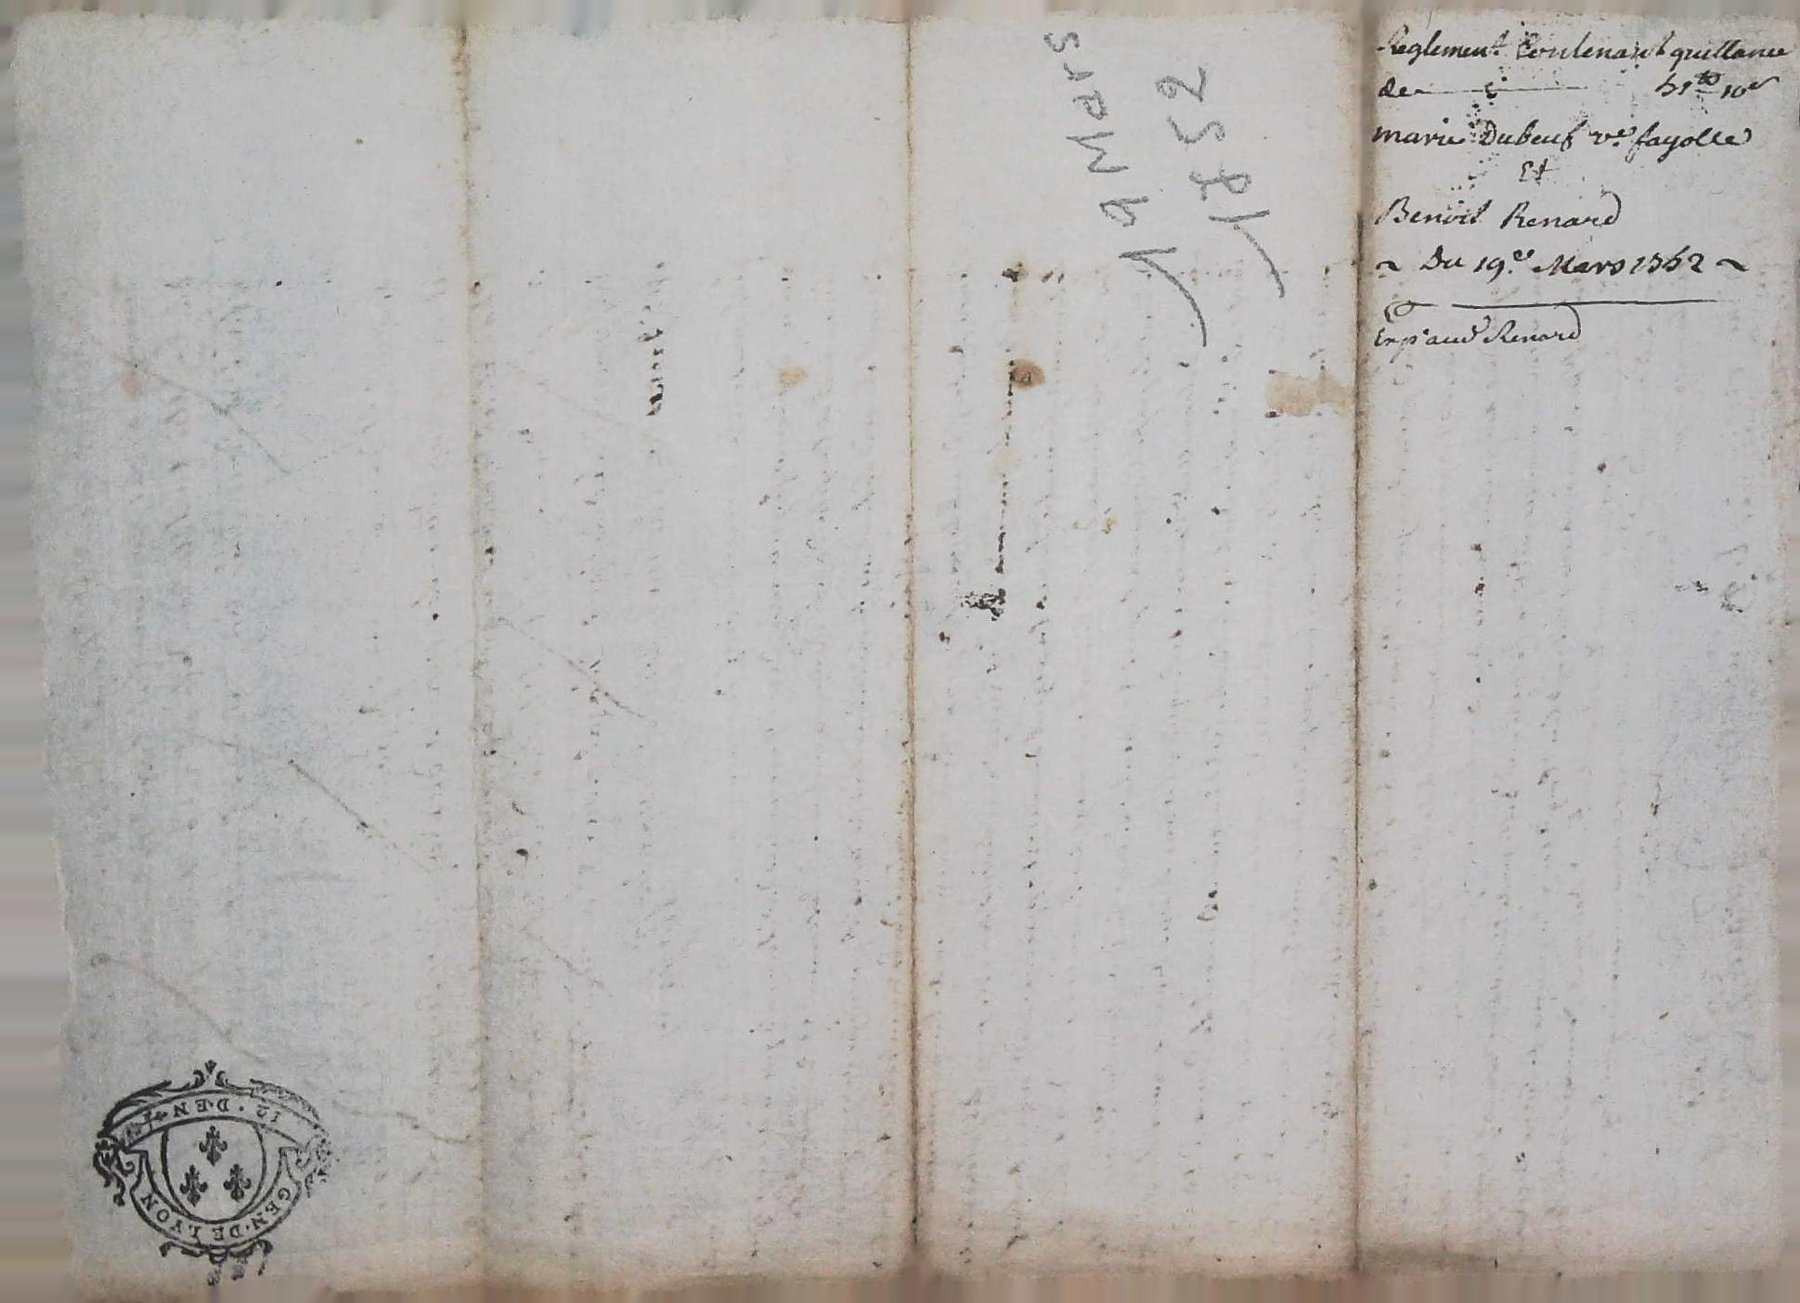 Reglement Contenant quittance
de 51# 10s
marie Dubeuf ve. fayolle
Et
Benoit Renard
~ Du 19.e Mars 1752 ~
Exp. aud. Renard
19 Mars
1752
12 . DEN
GEN . DE LYON